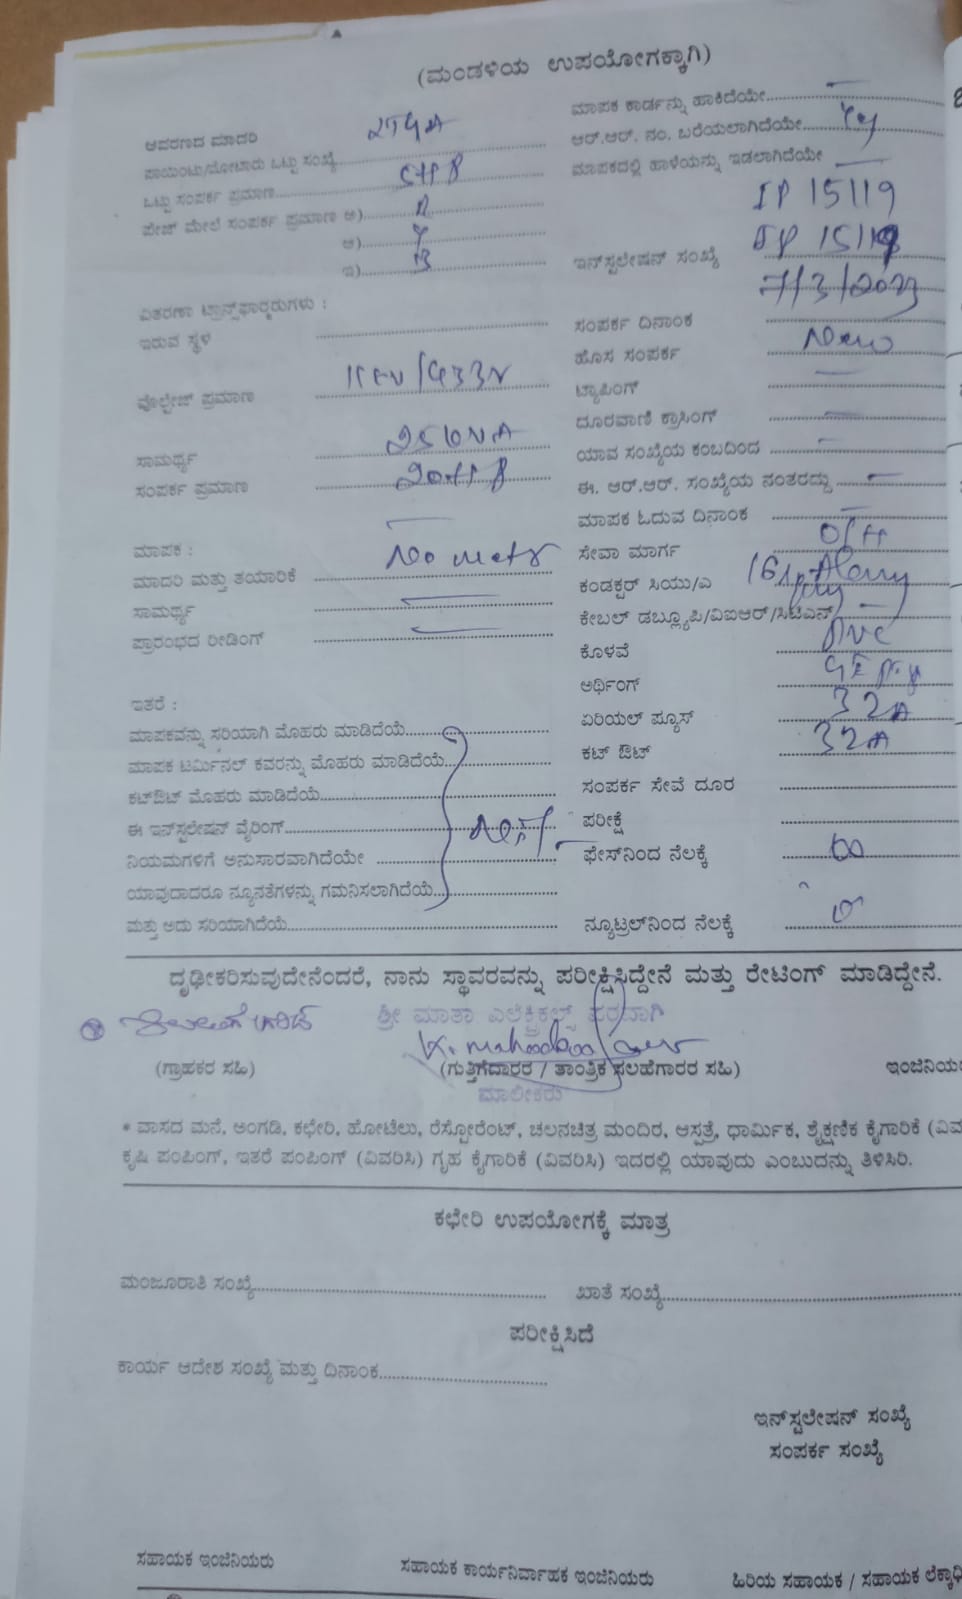 (ಮಂಡಳಿಯ ಉಪಯೋಗಕ್ಕಾಗಿ)
ಮಾಪಕ ಕಾರ್ಡನ್ನು ಹಾಕಿದೆಯೇ
ಆವರಣದ ಮಾದರಿ
ಆರ್.ಆರ್. ನಂ. ಬರೆಯಲಾಗಿದೆಯೇ
ಪಾಯಿಂಟು/ಮೋಟಾರು ಒಟ್ಟು ಸಂಖ್ಯೆ
ಮಾಪಕದಲ್ಲಿ ಹಾಳೆಯನ್ನು ಇಡಲಾಗಿದೆಯೇ
ಒಟ್ಟು ಸಂಪರ್ಕ ಪ್ರಮಾಣ 5HP
IP 15119
ಪೇಜ್ ಮೇಲೆ ಸಂಪರ್ಕ ಪ್ರಮಾಣ ಅ) R
ಆ) Y
ಇ) B
ಇನ್‌ಸ್ಟಲೇಷನ್ ಸಂಖ್ಯೆ IP 15119
7/3/2023
ವಿತರಣಾ ಟ್ರಾನ್ಸ್‌ಫಾರ್ಮರುಗಳು :
ಇರುವ ಸ್ಥಳ
ಸಂಪರ್ಕ ದಿನಾಂಕ
ಹೊಸ ಸಂಪರ್ಕ New
ವೊಲ್ಟೇಜ್ ಪ್ರಮಾಣ
ಟ್ಯಾಪಿಂಗ್
ದೂರವಾಣಿ ಕ್ರಾಸಿಂಗ್
ಸಾಮರ್ಥ್ಯ
ಯಾವ ಸಂಖ್ಯೆಯ ಕಂಬದಿಂದ
ಸಂಪರ್ಕ ಪ್ರಮಾಣ
ಈ. ಆರ್.ಆರ್. ಸಂಖ್ಯೆಯ ನಂತರದ್ದು
ಮಾಪಕ ಓದುವ ದಿನಾಂಕ
ಮಾಪಕ :
ಸೇವಾ ಮಾರ್ಗ O/H
ಮಾದರಿ ಮತ್ತು ತಯಾರಿಕೆ No meter
ಕಂಡಕ್ಟರ್ ಸಿಯು/ಎ
ಸಾಮರ್ಥ್ಯ
ಕೇಬಲ್ ಡಬ್ಲ್ಯೂಪಿ/ವಿಐಆರ್/ಸಿಟಿಎಸ್
ಪ್ರಾರಂಭದ ರೀಡಿಂಗ್
ಕೊಳವೆ PVC
ಅರ್ಥಿಂಗ್
ಇತರೆ :
ಏರಿಯಲ್ ಪ್ಯೂಸ್ 32A
ಮಾಪಕವನ್ನು ಸರಿಯಾಗಿ ಮೊಹರು ಮಾಡಿದೆಯೆ
ಕಟ್ ಔಟ್ 32A
ಮಾಪಕ ಟರ್ಮಿನಲ್ ಕವರನ್ನು ಮೊಹರು ಮಾಡಿದೆಯೆ
ಸಂಪರ್ಕ ಸೇವೆ ದೂರ
ಕಟ್‌ಔಟ್ ಮೊಹರು ಮಾಡಿದೆಯೆ
ಪರೀಕ್ಷೆ
ಈ ಇನ್‌ಸ್ಟಲೇಷನ್ ವೈರಿಂಗ್
ಫೇಸ್‌ನಿಂದ ನೆಲಕ್ಕೆ
ನಿಯಮಗಳಿಗೆ ಅನುಸಾರವಾಗಿದೆಯೇ
ಯಾವುದಾದರೂ ನ್ಯೂನತೆಗಳನ್ನು ಗಮನಿಸಲಾಗಿದೆಯೆ
ಮತ್ತು ಅದು ಸರಿಯಾಗಿದೆಯೆ
ನ್ಯೂಟ್ರಲ್‌ನಿಂದ ನೆಲಕ್ಕೆ
ದೃಢೀಕರಿಸುವುದೇನೆಂದರೆ, ನಾನು ಸ್ಥಾವರವನ್ನು ಪರೀಕ್ಷಿಸಿದ್ದೇನೆ ಮತ್ತು ರೇಟಿಂಗ್ ಮಾಡಿದ್ದೇನೆ.
ಶ್ರೀ ಮಾತಾ ಎಲೆಕ್ಟ್ರಿಕಲ್ಸ್ ಪರವಾಗಿ
(ಗ್ರಾಹಕರ ಸಹಿ)
(ಗುತ್ತಿಗೆದಾರರ / ತಾಂತ್ರಿಕ ಸಲಹೆಗಾರರ ಸಹಿ)
ಇಂಜಿನಿಯರ
ಮಾಲೀಕರು
* ವಾಸದ ಮನೆ, ಅಂಗಡಿ, ಕಛೇರಿ, ಹೋಟೆಲು, ರೆಸ್ಟೋರೆಂಟ್, ಚಲನಚಿತ್ರ ಮಂದಿರ, ಆಸ್ಪತ್ರೆ, ಧಾರ್ಮಿಕ, ಶೈಕ್ಷಣಿಕ ಕೈಗಾರಿಕೆ (ವಿವ
ಕೃಷಿ ಪಂಪಿಂಗ್, ಇತರೆ ಪಂಪಿಂಗ್ (ವಿವರಿಸಿ) ಗೃಹ ಕೈಗಾರಿಕೆ (ವಿವರಿಸಿ) ಇದರಲ್ಲಿ ಯಾವುದು ಎಂಬುದನ್ನು ತಿಳಿಸಿರಿ.
ಕಛೇರಿ ಉಪಯೋಗಕ್ಕೆ ಮಾತ್ರ
ಮಂಜೂರಾತಿ ಸಂಖ್ಯೆ
ಖಾತೆ ಸಂಖ್ಯೆ
ಪರೀಕ್ಷಿಸಿದೆ
ಕಾರ್ಯ ಆದೇಶ ಸಂಖ್ಯೆ ಮತ್ತು ದಿನಾಂಕ
ಇನ್‌ಸ್ಟಲೇಷನ್ ಸಂಖ್ಯೆ
ಸಂಪರ್ಕ ಸಂಖ್ಯೆ
ಸಹಾಯಕ ಇಂಜಿನಿಯರು
ಸಹಾಯಕ ಕಾರ್ಯನಿರ್ವಾಹಕ ಇಂಜಿನಿಯರು
ಹಿರಿಯ ಸಹಾಯಕ / ಸಹಾಯಕ ಲೆಕ್ಕಾಧಿ